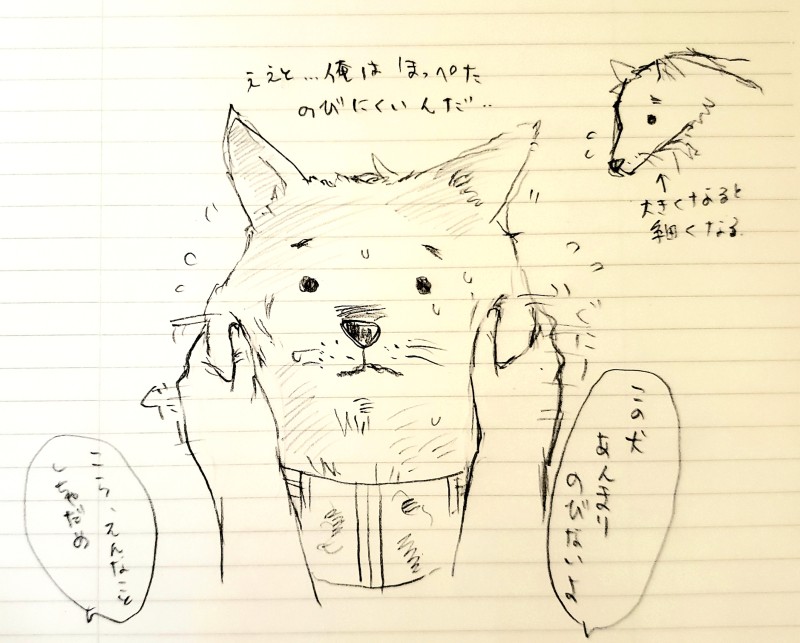 ええと…俺はほっぺた
のびにくいんだ…
大きくなると
細くなる
ぐにー
この犬
あんまり
のびないよ
こら、そんなこと
しちゃだめ